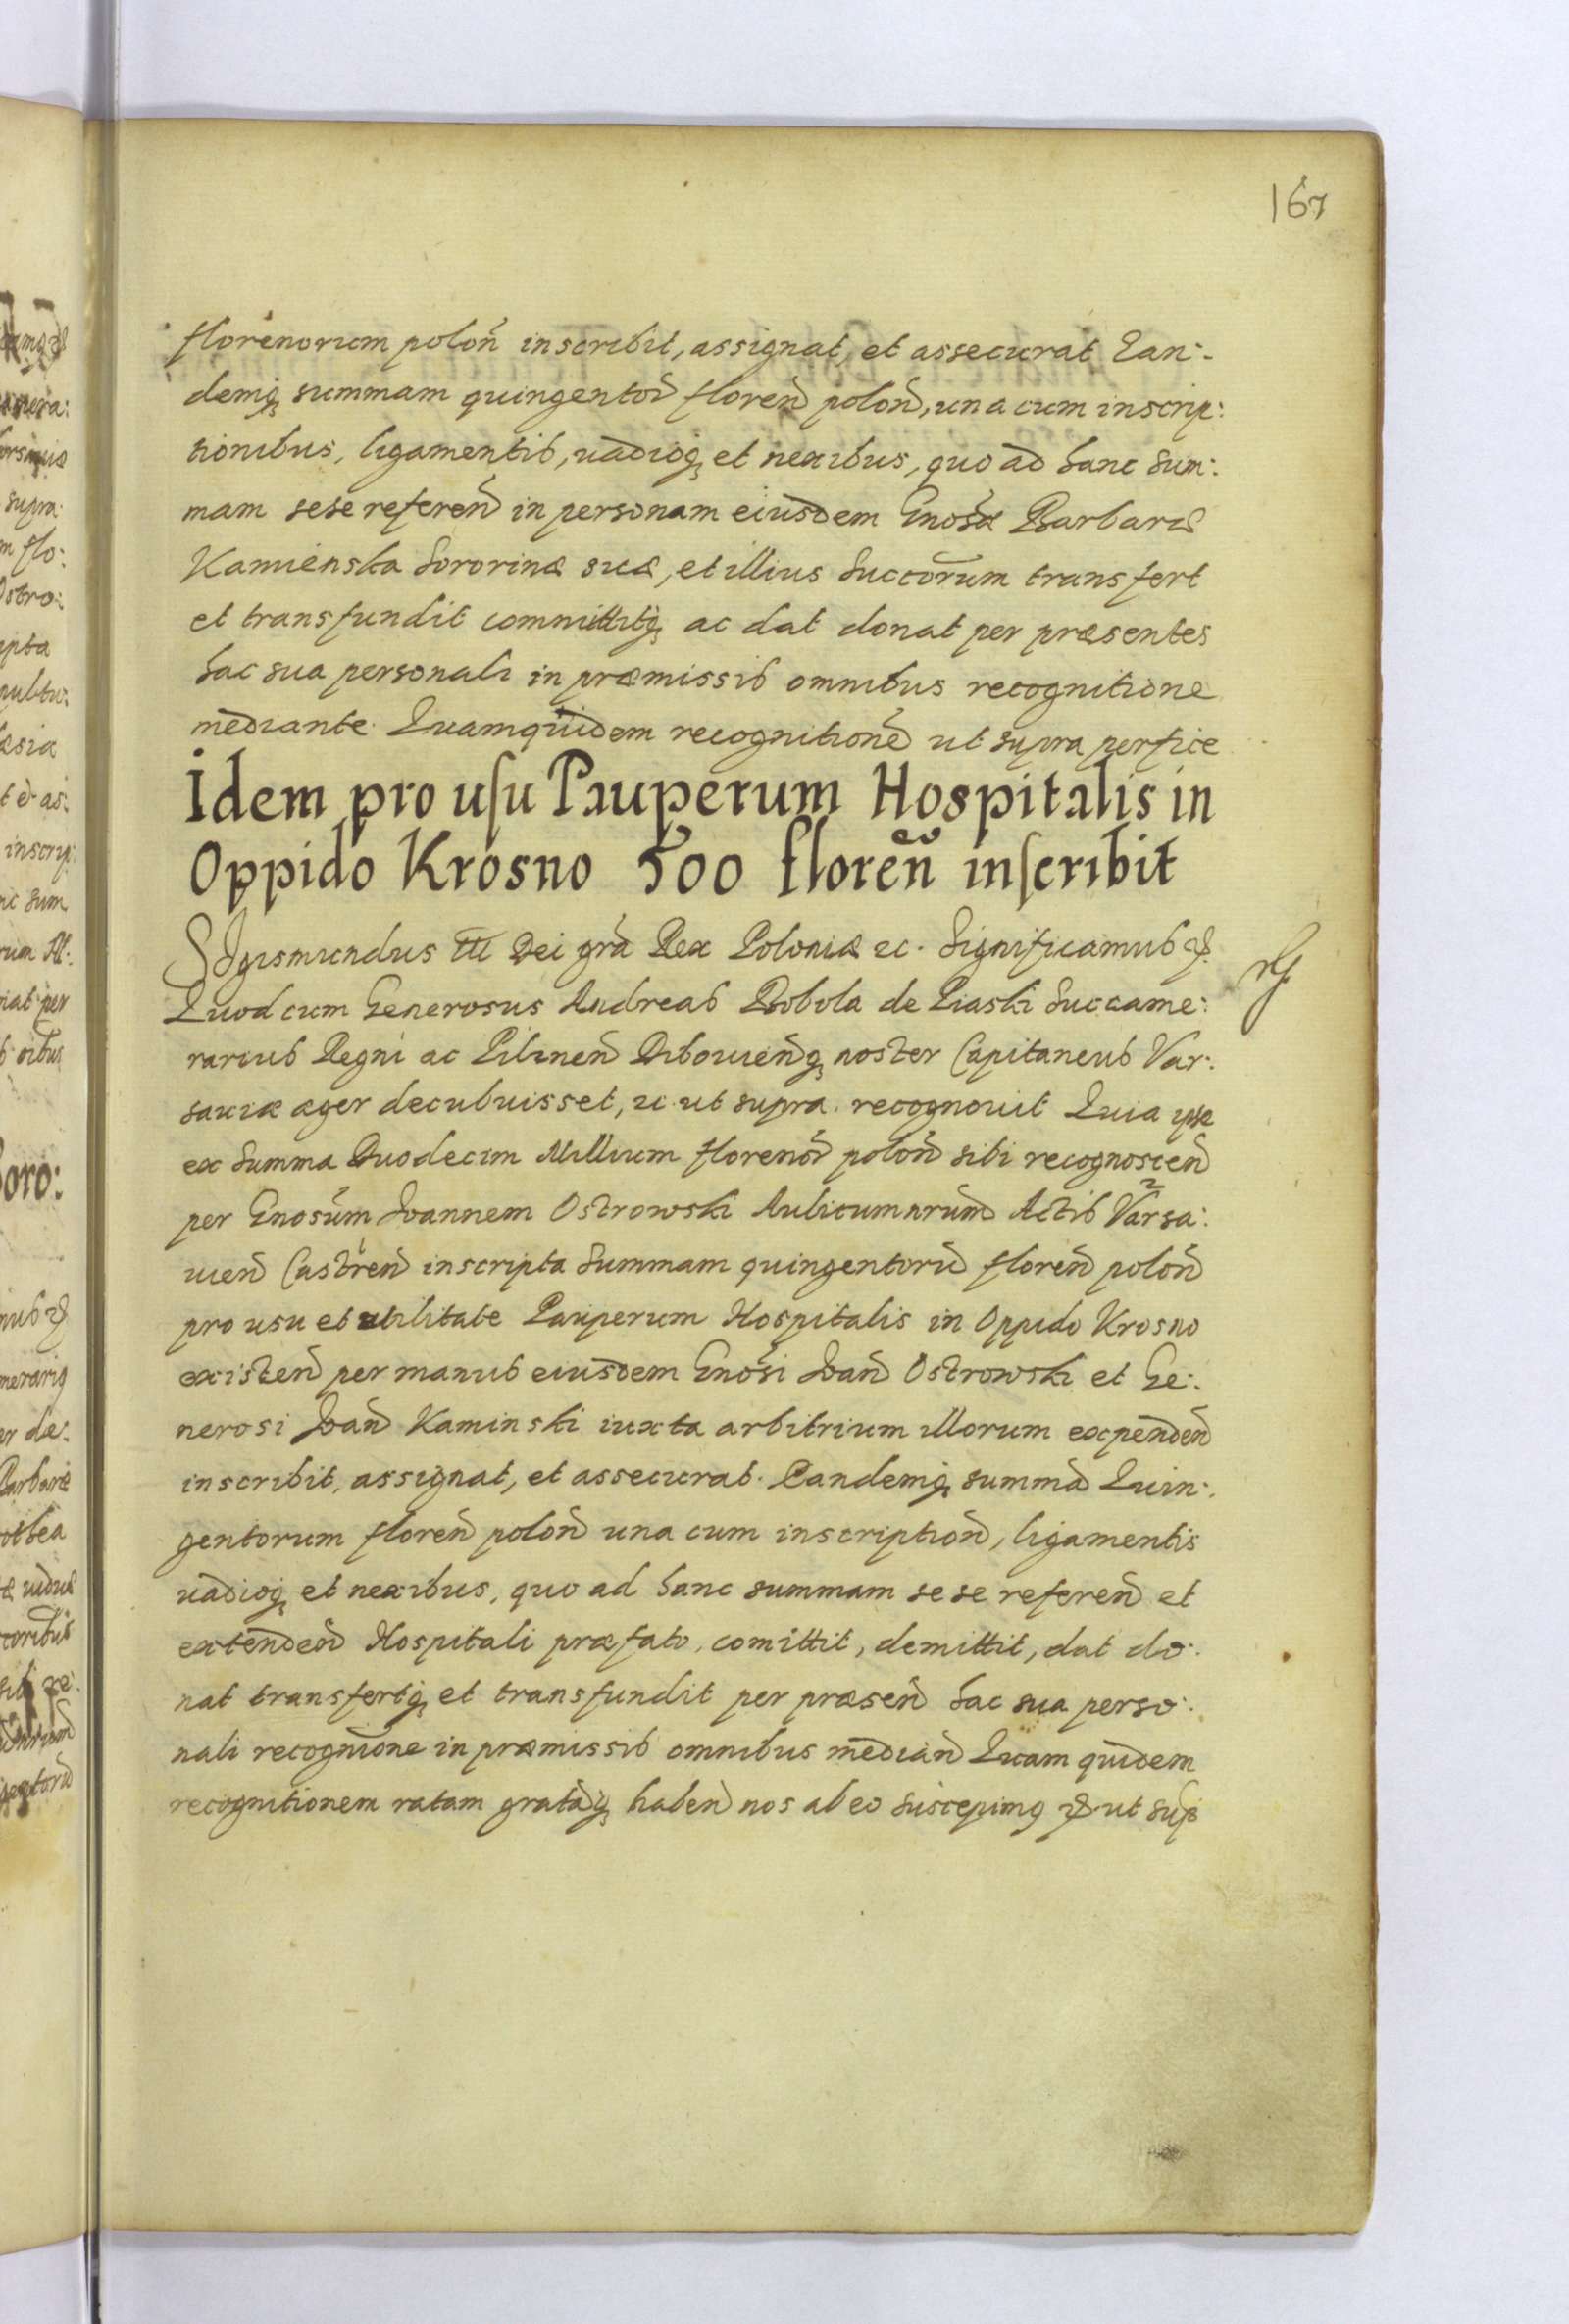 167
florenorum poloñ inscribit, assignat, et assecurat Ean:
demq₃ summam quingentor̃ floreñ poloñ, una cum inscrip:
tionibus, ligamentis, vadiisq₃ et nexibus, quo ad hanc sum:
mam sese refereñ in personam eiusdem Gnosæ Barbaræ
Kamienska Sororinæ suæ, et illius Succorum transfert
et transfundit committitq₃ ac dat donat per præsentes
hac sua personali in præmissis omnibus recognitione
mediante. Quamquidem recognitionẽ ut supra perfice
Idem pro uſu Pauperum Hospitalis in
Oppido Krosno 500 floreñ inſcribit
Sigismundus III Dei grã Rex Poloniæ ec. Significamus ꝛc.
Quod cum Generosus Andreas Bobola de Piaski Succame:
rarius Regni ac Pilzneñ Diboueñq₃ noster Capitaneus Var:
saviæ æger decubuisset, ꝛc ut supra. recognovit Quia ipse
ex Summa Duodecim Millium florenor̃ poloñ sibi recognosceñ
per Gnosum Joannem Ostrowski Aulicum nrum Actis Varsa:
vieñ Castreñ inscripta Summam quingentorũ floreñ poloñ
pro usu et utilitate Pauperum Hospitalis in Oppido Krosno
existeñ per manus eiusdem Gnosi Joañ Ostrowski et Ge:
nerosi Joañ Kaminski iuxta arbitrium illorum expendeñ
inscribit, assignat, et assecurat. Eandemq₃ summã Quin:
gentorum floreñ poloñ una cum inscriptioñ, ligamentis
vadioq₃ et nexibus, quo ad hanc summam sese refereñ et
extendeñ Hospitali præfato, comittit, demittit, dat do:
nat transfertq₃ et transfundit per præseñ hac sua perso:
nali recognione in præmissis omnibus mediañ Quam quidem
recognitionem ratam gratãq₃ habeñ nos ab eo suscepimq ꝛc ut sup̃